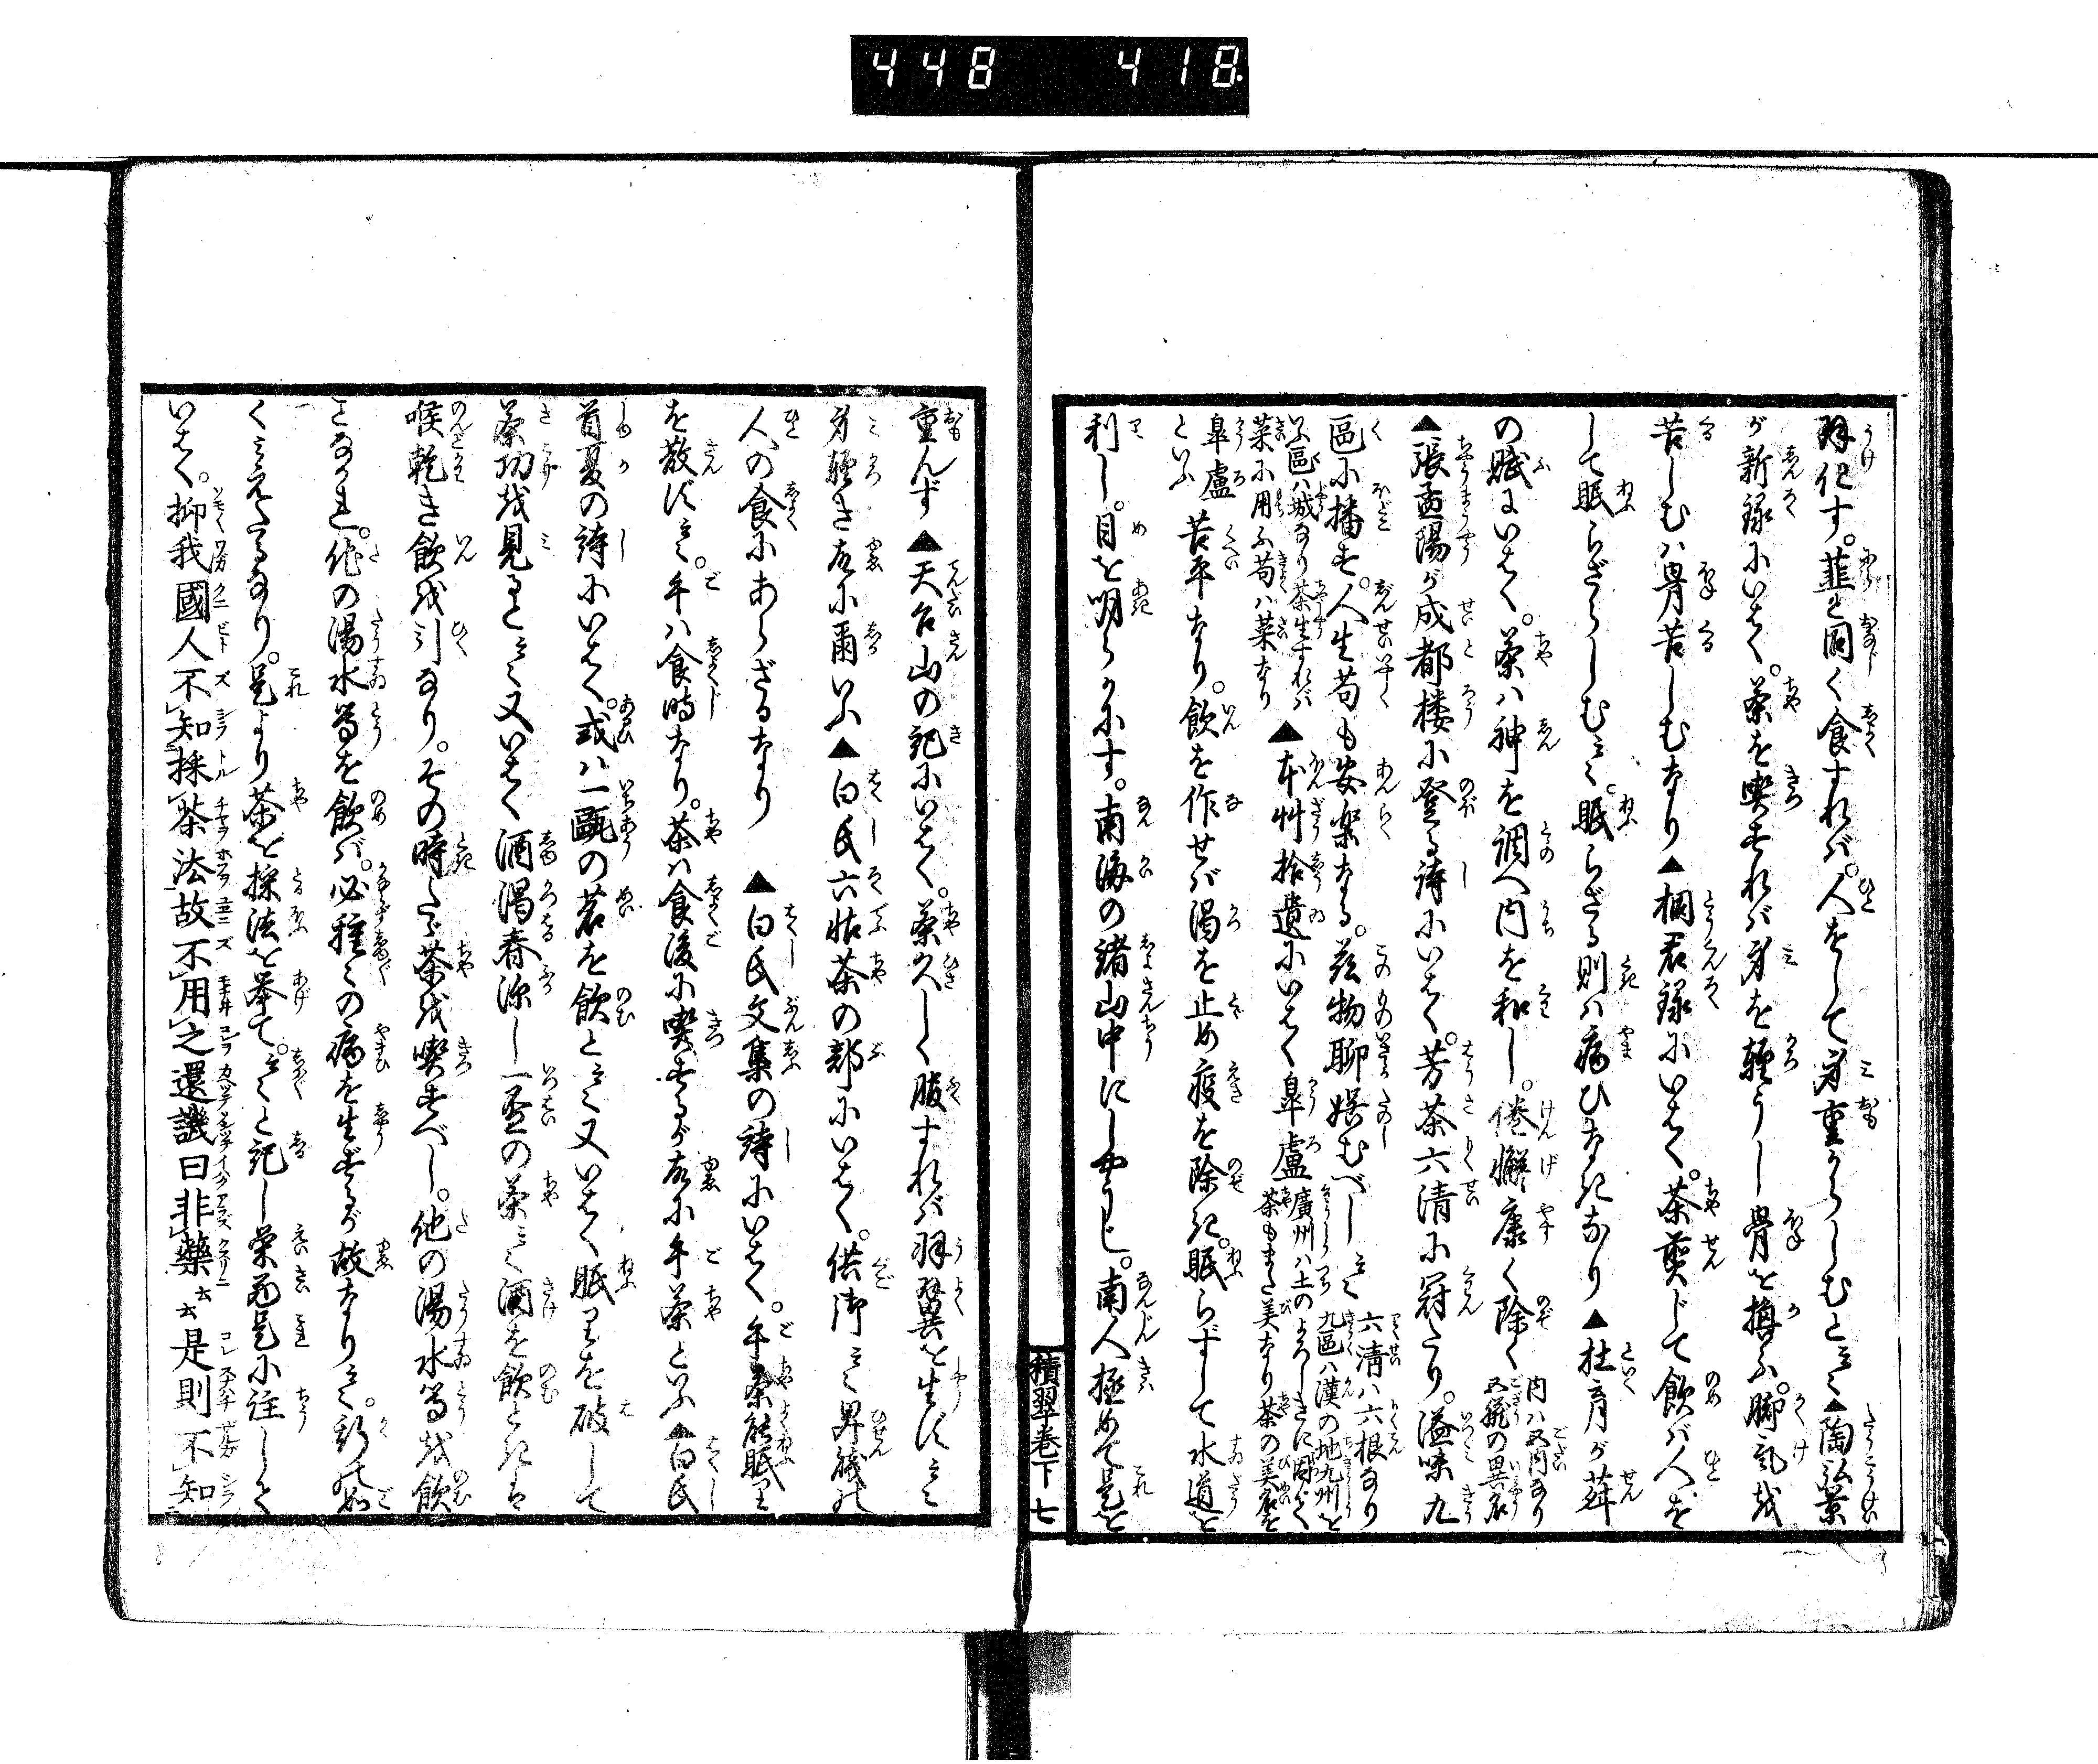 448 418
羽化す。韮と同く食すれバ。人をして身重からしむと云▲陶弘景
が新録にいはく。茶を喫すれバ身を軽うし骨を換ふ。脚気を
苦しむハ骨苦しむなり▲桐君録にいはく。茶煎じて飲バ人を
して眠らざらしむと云。眠らざる則ハ病ひなきなり▲杜育が荈
の賦にいはく。茶ハ神を調へ内を和し。倦懈康く除く
内ハ五内なり
五臓の異名
▲張孟陽が成都楼に登る詩にいはく。芳茶六清に冠たり。溢味九
區に播す。人生苟も安楽なる。茲物聊娯むべしと云
六清ハ六根なり
九區ハ漢の地九州を
いふ區ハ域なり茶生すれバ
菜に用ふ苟ハ菜なり
▲本艸拾遺にいはく皐盧
廣州ハ土のよろしきに因がく
茶もまた美なり茶の美名を
皐盧
といふ
苦平なり。飲を作せバ渇を止め疫を除き。眠らずして水道を
利し。目を明らかにす。南海の諸山中にしやうじ。南人極めて是を
積翠巻下 七
重んず▲天台山の記にいはく。茶久しく服すれバ羽翼を生ずと云
身軽き故に爾いふ▲白氏六帖茶の部にいはく。供御と云卑賎の
人の食にあらざるなり ▲白氏文集の詩にいはく。午茶能眠り
を散ずと云。午ハ食時なり。茶ハ食後に喫するが故に午茶といふ▲白氏
首夏の詩にいはく。或ハ一甌の茗を飲と云又いはく眠りを破して
茶功を見ると云又いはく酒渇春深し一盃の茶と云酒を飲ときは
喉乾き飲を引なり。その時たゞ茶を喫すべし。他の湯水等を飲
ことなかれ。他の湯水等を飲バ。必種々の病を生ずるが故なりと云。斯の如
くミえたるなり。是より茶を採法を挙て。云々と記し栄西是に注しく
いはく。抑我國人不知採茶法故不用之還譏曰非藥云云是則不知